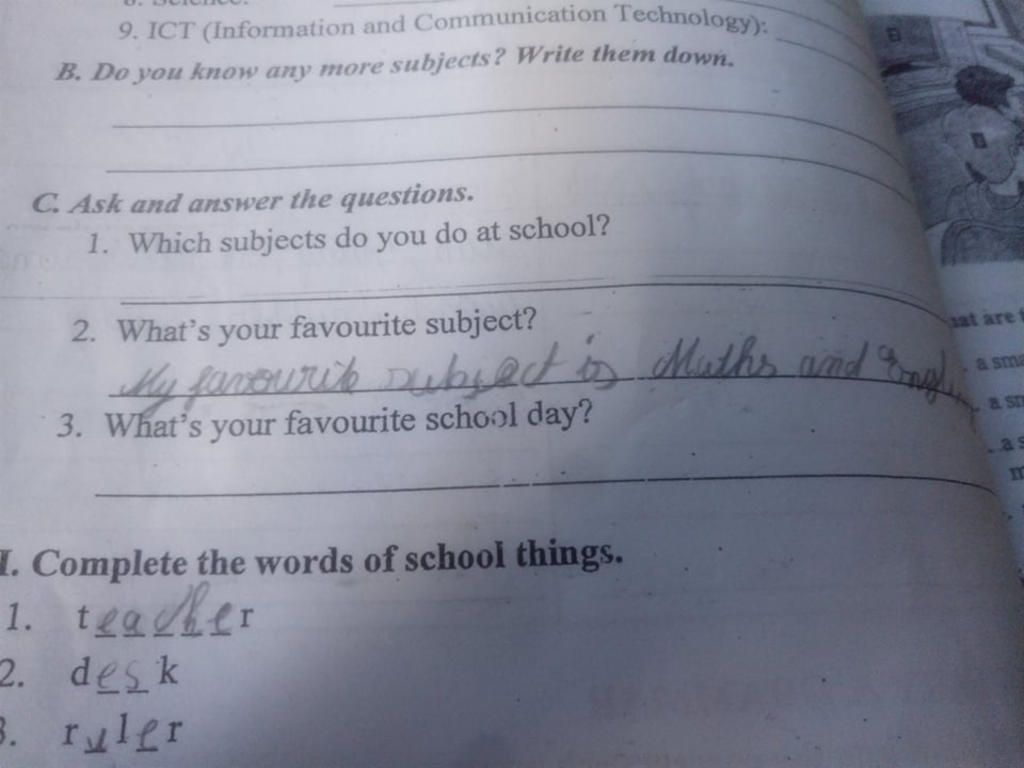 8. Science:
9. ICT (Information and Communication Technology):
B. Do you know any more subjects? Write them down.
C. Ask and answer the questions.
1. Which subjects do you do at school?
2. What's your favourite subject?
My favourite subject is Maths and Engl
3. What's your favourite school day?
I. Complete the words of school things.
1. teacher
2. desk
3. ruler
at are
a sma
a sm
a s
m